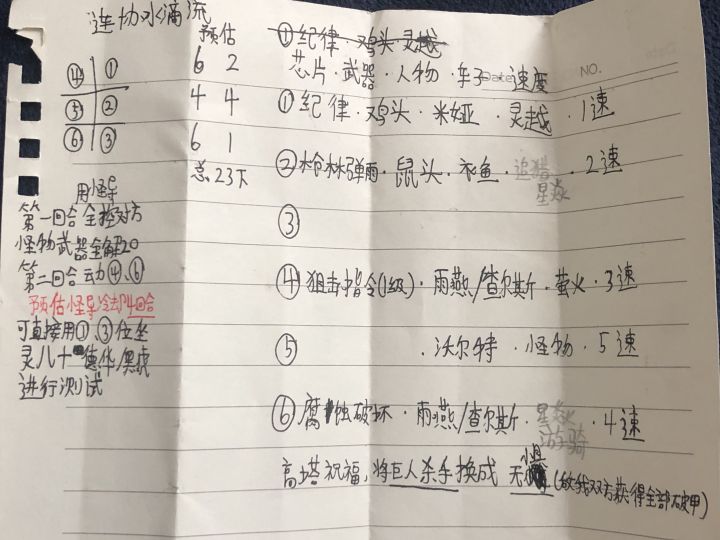 连协水滴流
预估
④ ① 6 2
⑤ ② 4 4
⑥ ③ 6 1
总23下
用怪导
第一回合全控对方
怪物武器全解20
第二回合动④、⑥
预估怪导冷却4回合
可直接用①、③位坐
灵八十德华/黑虎
进行测试
①纪律·鸡头·灵越
芯片·武器·人物·车子 速度
Date
NO.
①纪律·鸡头·米娅·灵越·1速
②枪林弹雨·鼠头·衣鱼·追猎·2速
星焱
③
④狙击指令(1级)·雨燕/查尔斯·萤火·3速
⑤ ·沃尔特·怪物·5速
⑥腐蚀破坏·雨燕/查尔斯·星焱·4速
游骑
高塔祝福,将巨人杀手换成无
(敌我双方获得全部破甲)